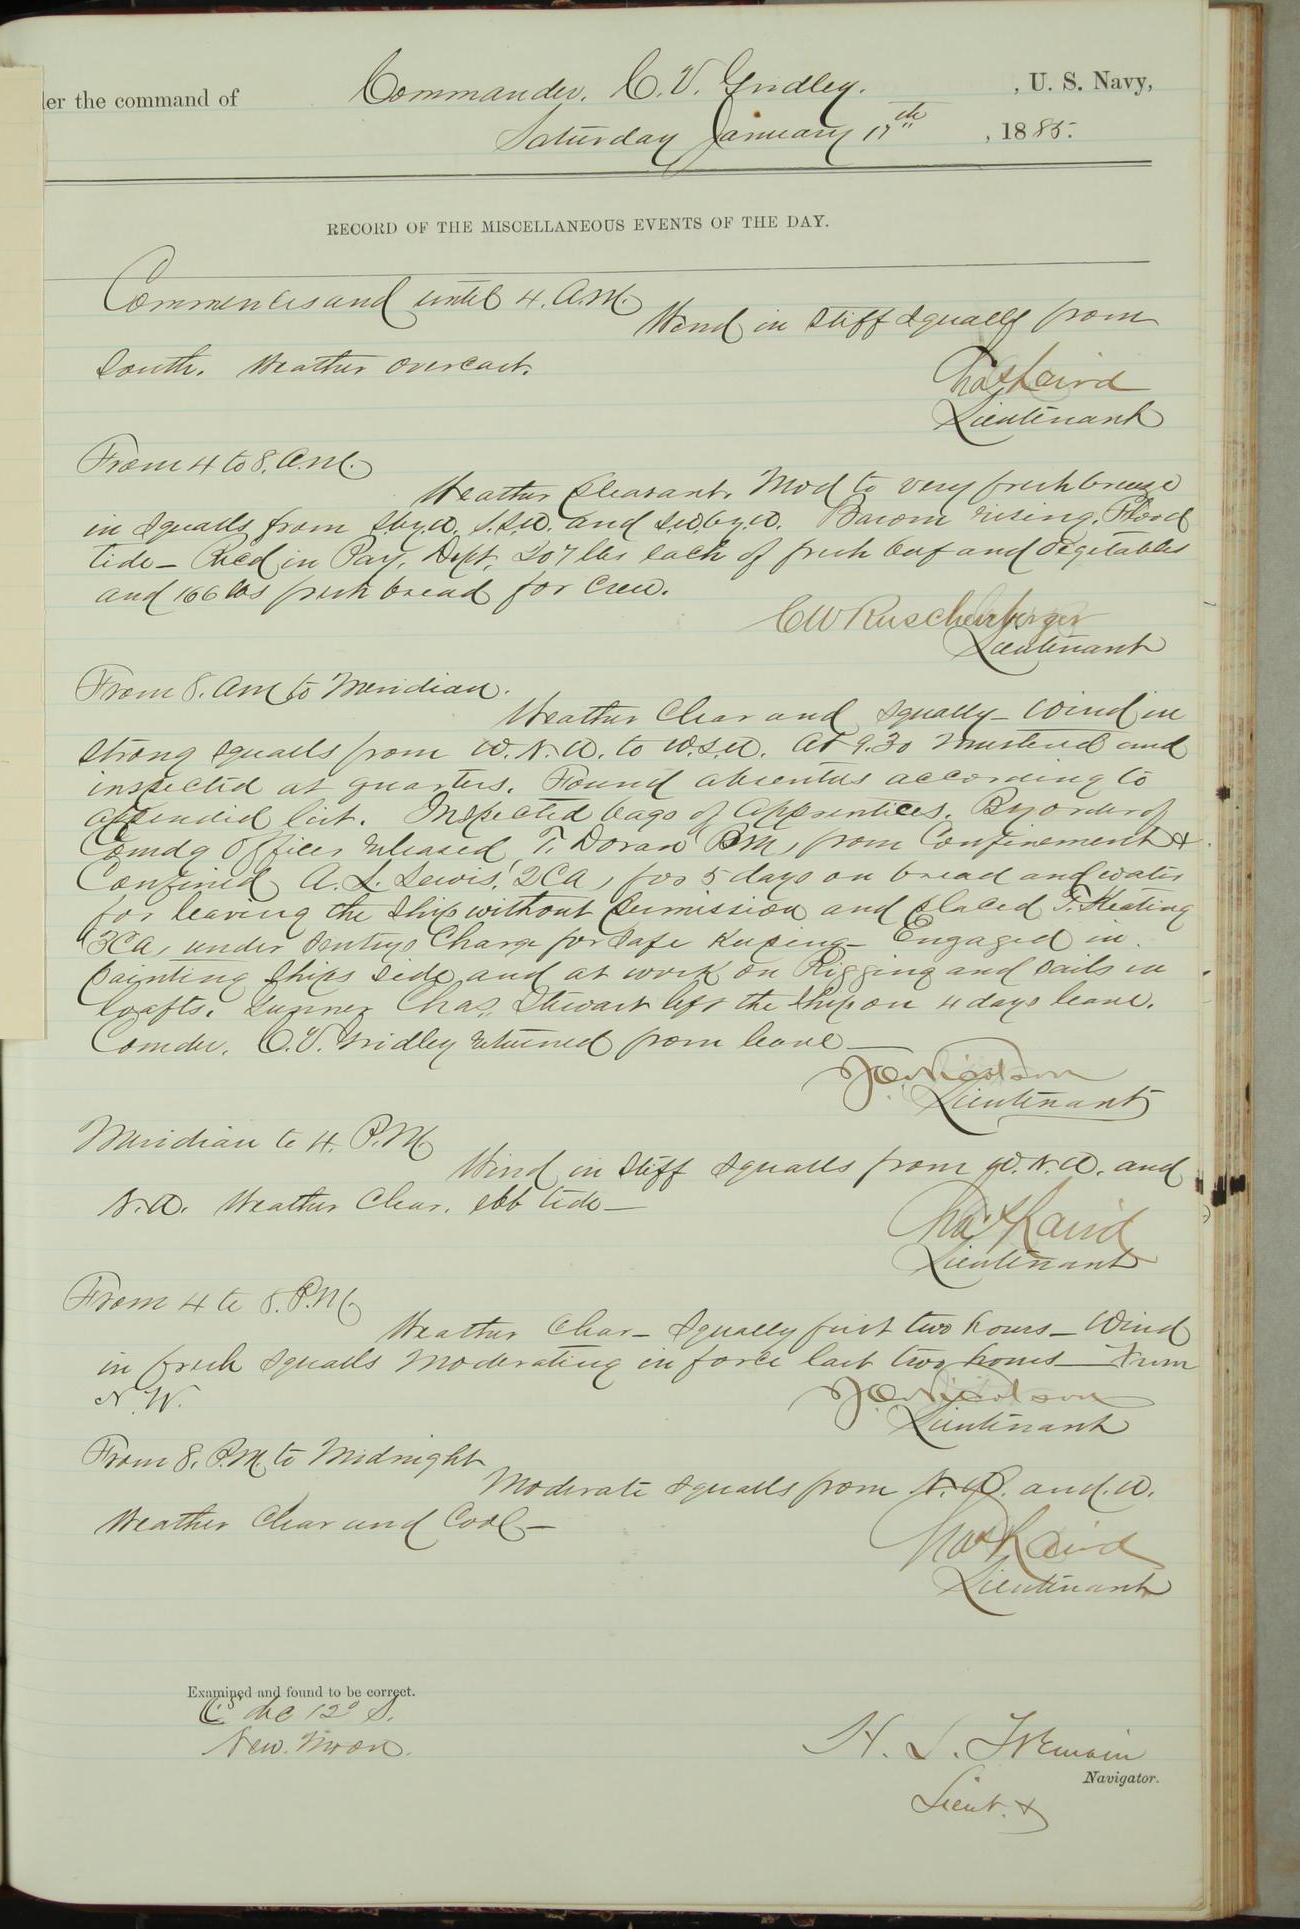 der the command of Commander. C. V. Gridley. , U. S. Navy,
Saturday January 17th , 1885.
RECORD OF THE MISCELLANEOUS EVENTS OF THE DAY.
Commences and until 4. A.M.
Wind in stiff squalls from
South. Weather overcast.
Chas Laird
Lieutenant
From 4 to 8. A.M.
Weather pleasant. Mod to very fresh breeze
in squalls from S.by.W. S.S.W. and S.W.by.W. Barom rising. Flood
tide— Rec'd in Pay. Dept. 207 lbs each of fresh beef and vegetables
and 166 lbs fresh bread for crew.
C W Ruschenberger
Lieutenant
From 8. AM to Meridian.
Weather Clear and squally— Wind in
strong squalls from W.N.W. to W.S.W. At 9.30 mustered and
inspected at quarters. Found absentees according to
appended list. Inspected bags of apprentices. By order of
Comdg Officer released T. Doran Bm, from Confinement &
Confined A. L. Lewis, 2CA, for 5 days on bread and water
for leaving the ship without permission and placed T. Keating
3CA, under sentrys Charge for safe keeping— Engaged in
painting ships side, and at work on Rigging and sails in
loafts. Gunner Chas. Stewart left the ship on 4 days leave.
Comdr. C. V. Gridley returned from leave—
Lieutenant
Meridian to 4. P.M.
Wind in stiff squalls from W.N.W. and
N.W. Weather Clear. ebb tide—
Chas Laird
Lieutenant
From 4 to 8. P.M.
Weather Clear— Squally first two hours— Wind
in fresh squalls moderating in force last two hours— From
N.W.
Lieutenant
From 8. P.M. to Midnight
Moderate squalls from N.W. and W.
Weather Clear and Cool—
Chas Laird
Lieutenant
Examined and found to be correct.
dec 12° S.
New. Moon.
H. L. Tremain
Navigator.
Lieut. &